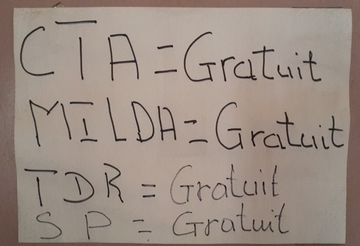 CTA = Gratuit
MILDA = Gratuit
TDR = Gratuit
SP = Gratuit